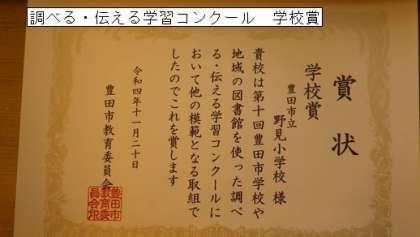 調べる・伝える学習コンクール　学校賞
賞状
学校賞
豊田市立
野見小学校 様
貴校は第十回豊田市学校や
地域の図書館を使った調べ
る・伝える学習コンクールに
おいて他の模範となる取組で
したのでこれを賞します
令和四年十一月二十日
豊田市教育委員会
豊田市
教育委
員会印